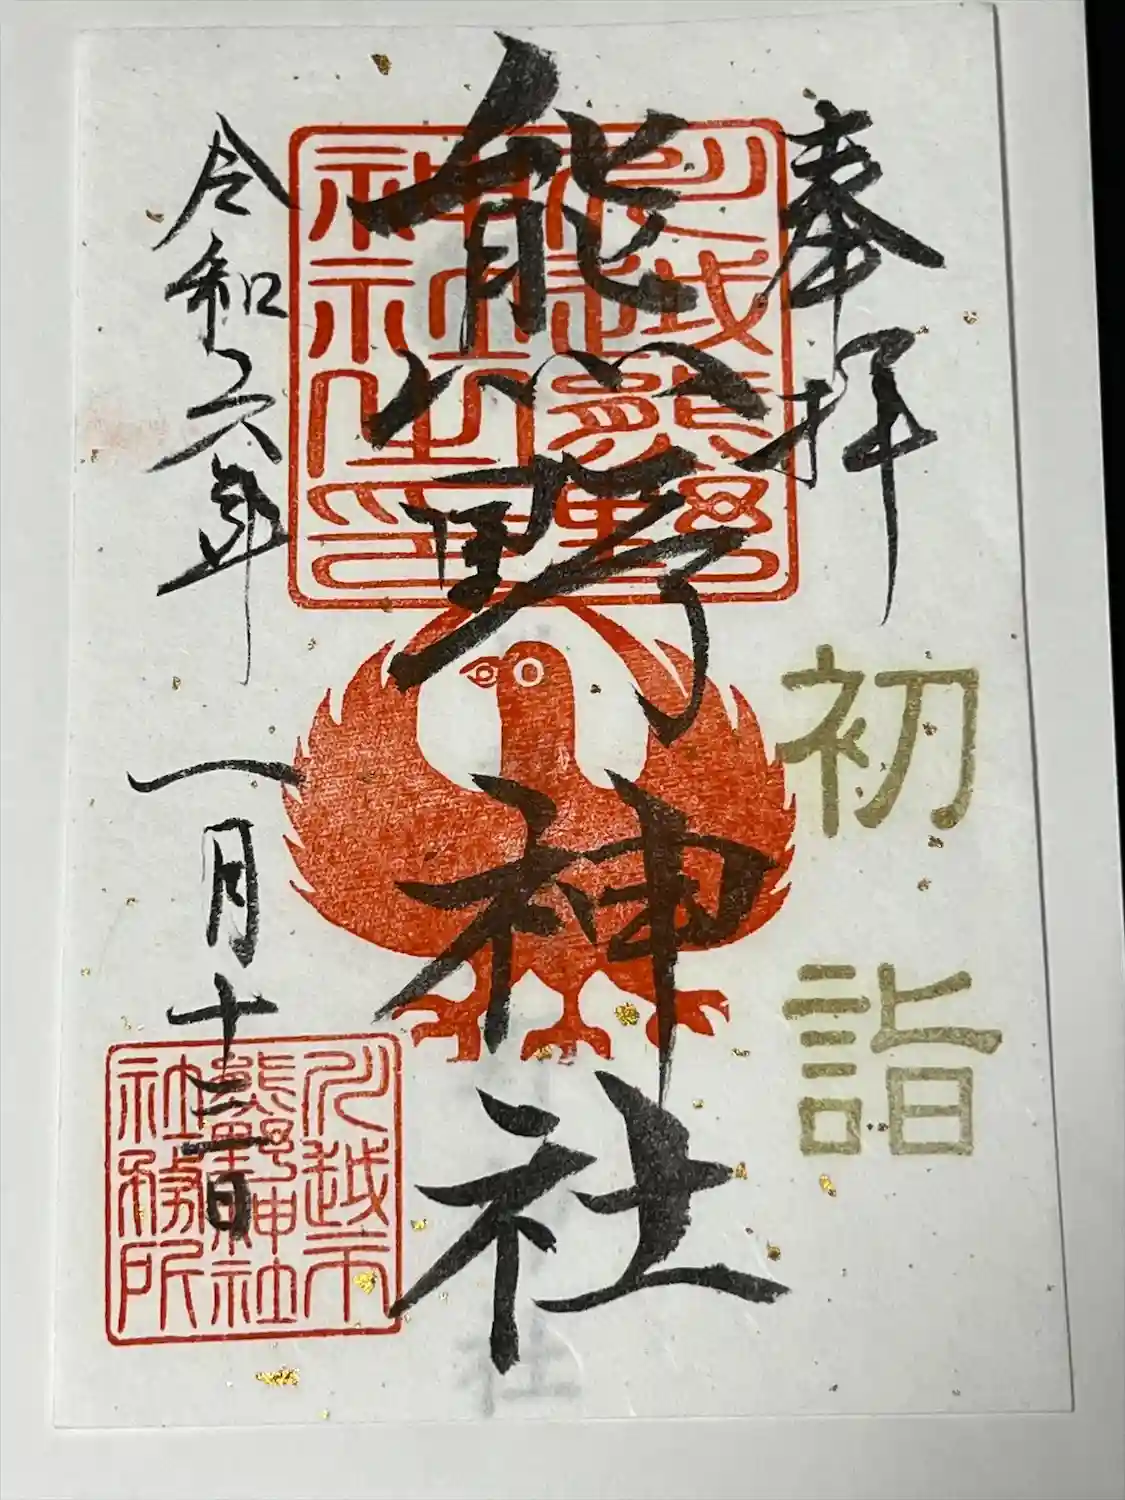 奉拝
初詣
川越熊野
神社之印
熊野神社
令和六年 一月十三日
川越市
熊野神社
社務所